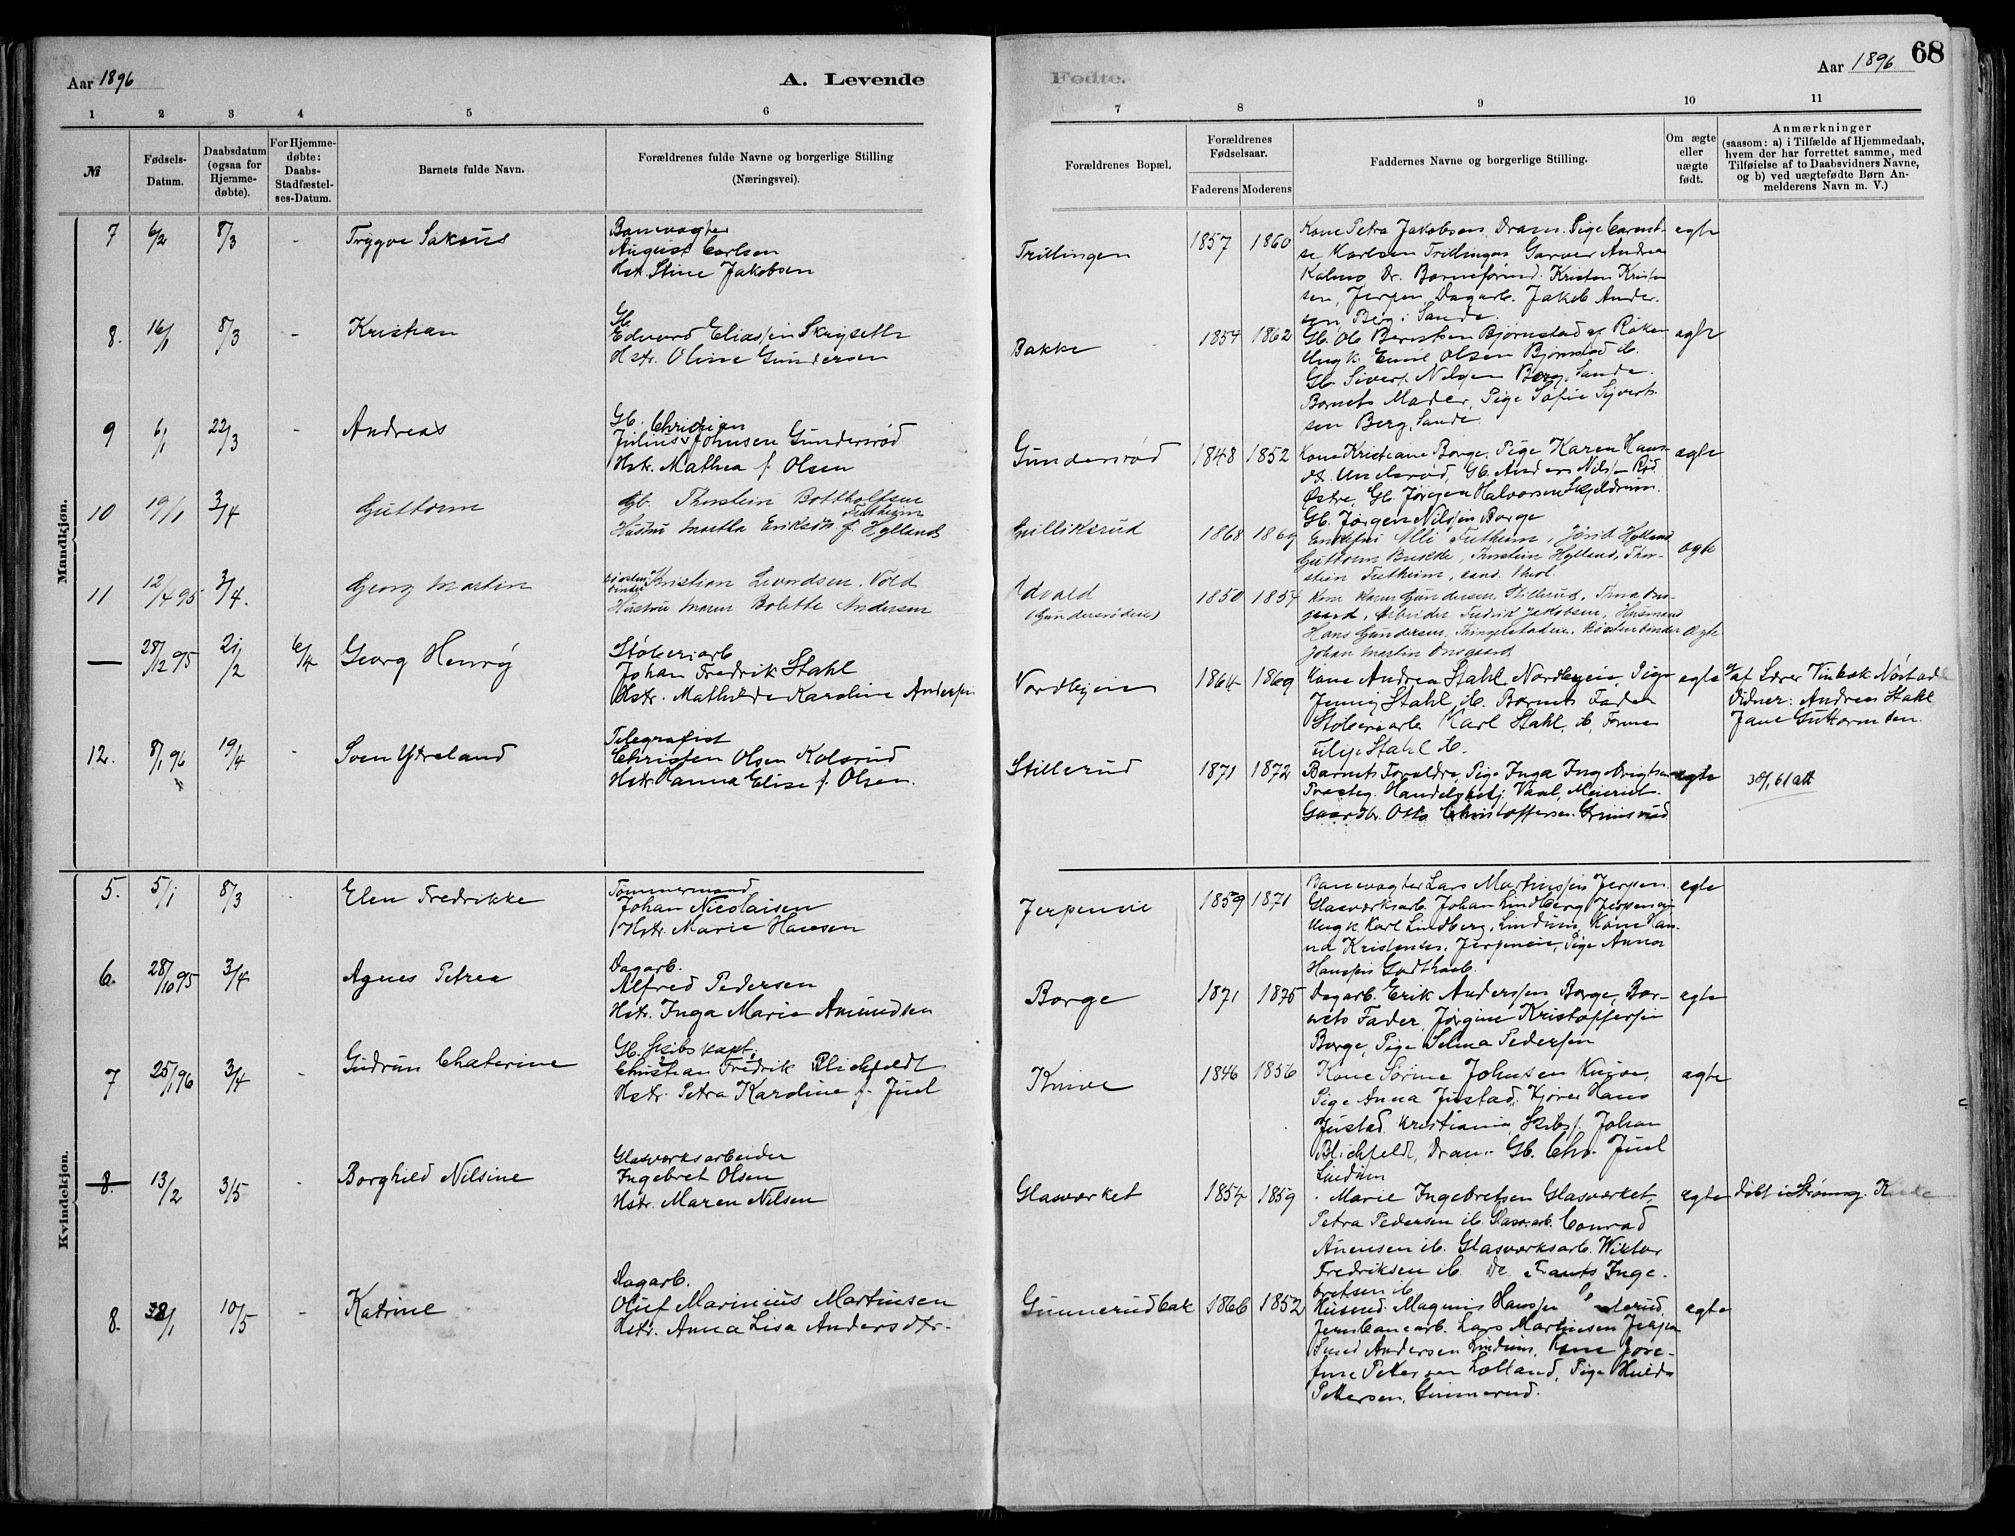 Aar 1896
A. Levende
Fødte.
Aar 1896
68
1 2 3 4 5 6
7 8 9 10 11
№
Fødsels-
Datum.
Daabsdatum
(ogsaa for
Hjemme-
døbte).
For Hjemme-
døbte:
Daabs-
Stadfæstel-
ses-Datum.
Barnets fulde Navn.
Forældrenes fulde Navne og borgerlige Stilling
(Næringsvei).
Forældrenes Bopæl,
Forældrenes
Fødselsaar.
Faderens Moderens
Faddernes Navne og Stilling.
Om ægte
eller
uægte
født.
Anmærkninger
(saasom: a) i Tilfælde af Hjemmedaab,
hvem der har forrettet samme, med
Tilføielse af to Daabsvidners Navne,
og b) ved uægtefødte Børn An-
melderens Navn m. V.)
Mandkjøn.
7 6/2 8/3 -
Banevogter
August Carlsen
Hst. Stine Jakobsen
Trillingen
1857 1860
Kone Petra Jakobsen, Dram. Pige
Karlsen Trillingen Garver Andrea
sen, Jerpen, Dagarb. Jakob Ander-
sen, Berg i Sande.
egte
8. 16/1 8/3 -
Kristian
Gb.
Edvard Eliassen
Hstr. Oline Gundersen
Bakke
1854 1862
Gb. Ole Berntsen Bjørnstad af Røken
Ungk. Emil Olsen Bjørnstad ib.
Gb. Sivert Nilsen Berg, Sande.
Barnets Moder, Pige Sofie Sivert-
sen Berg, Sande.
egte
9 6/1 22/3 -
Andreas
Gb. Christian
Julius Johnsen Gundersrød
Hstr. Mathea f. Olsen
Gundersrød
1848 1852
Kone Kristiane Borge, Pige Karen Hans-
dt. Underød, Gb. Anders Nilsen Rød
Østre, Gb. Jørgen Halvorsen Skjeldrum.
Gb. Jørgen Nilssen Borge
egte
10 19/1 3/4 -
Guttorm
Gb. Thorstein Bottholfsen
Fretheim
Hustru Martha Eriksdtr. f. Hylland
Gulliksrud
1868 1869
Fretheim, Jørid Hylland
Guttorm Brekke, Thorstein Hylland, Thor-
stein Fretheim, cand. theol.
egte
11 12/4 95 3/4. -
Georg Martin
Børsten-
binder Kristian Svendsen Vold
Hustru Maren Bolette Andersen
Edvald
(Gundersrødeie)
1850 1854
Kone Karen Gundersen, Stillerud,
Arbeider Fredrik Jakobsen, Husmand
Hans Gundersen, Børstenbinder
Johan Martin
Ægte
— 28/12 95 21/2 6/4
Georg Henry
Støberiarb
Johan Fredrik Stahl
Hstr. Mathilde Karoline Andersen
Nordbyeie
1864 1869
Kone Andrea Stahl Nordbyeie, Pige
Jenny Stahl, ib. Barnets Fader
Støberiarb. Karl Stahl, ib, Former
Filip Stahl ib.
egte
af Lærer
Vidner: Andrea Stahl
Jane Guttormsen.
12. 8/1 96 19/4 -
Sven Ytreland
Telegrafist
Christen Olsen Kolsrud
Hstr Hanna Elise f. Olsen.
Stillerud
1871 1872
Barnets Forældre, Pige Inga Ingebrigtsen
Gaardbr. Otto Christoffersen Grimsrud
egte
Kvindekjøn.
5. 5/1 8/3 -
Elen Fredrikke
Tømmermand
Johan Nicolaisen
Hstr. Marie Hansen
Jerpeneie
1859 1871
Banevogter Lars Martinssen Jerpen.
Glasværksarb. Johan Lindberg Jerpeneie
Ungk Karl Lindberg, Lindum, Kone Han-
na Kristensen, Jerpeneie, Pige Anna
Hanssen Godthaab.
egte
6. 28/10 95 3/4 -
Agnes Petrea
Dagarb.
Alfred Pedersen
Hstr. Inga Marie Amundsen
Borge
1871 1875
Dagarb. Erik Anderssen Borge, Bar-
nets Fader, Jørgine Kristoffersen
Borge, Pige Selma Pedersen
egte
7 25/1 96 3/4 -
Gudrun Chaterine
Gb. Skibskapt.
Christian Fredrik Blichfeldt
Hstr. Petra Karoline f. Juel
Knive
1846 1856
Kone Sørine Johnsen Knive,
Pige Anna Justad, Hans
Justad, Kristiania, Skibsf. Johan
Blichfeldt, Dram. Gb. Chr. Juel
Lindum
egte
8. 13/2 3/5 -
Borghild Nilsine
Glasværksarbeider
Ingebret Olsen
Hstr. Maren Nilsen
Glasværket
1854 1859
Marie Ingebretsen Glasværket,
Petra Pedersen ib. Glasv.arb. Conrad
Anensen ib. Glasværksarb. Wiktor
Fredriksen ib. Do Frants Inge-
bretsen ib
egte
døbt i Strømsg. Kirke
8. 1/1 10/5 -
Katrine
Dagarb.
Oluf Marinius Martinsen
Hstr. Anna Lisa Andersdtr.
Gunnerudbak
1866 1852
Husmd. Magnus Hanssen
Jernbanearb. Lars Martinsen Jerpen
Andersen Lindum, Kone Jose-
fine Pettersen Lolland, Pige Hulda
Pettersen, Gunnerud.
egte